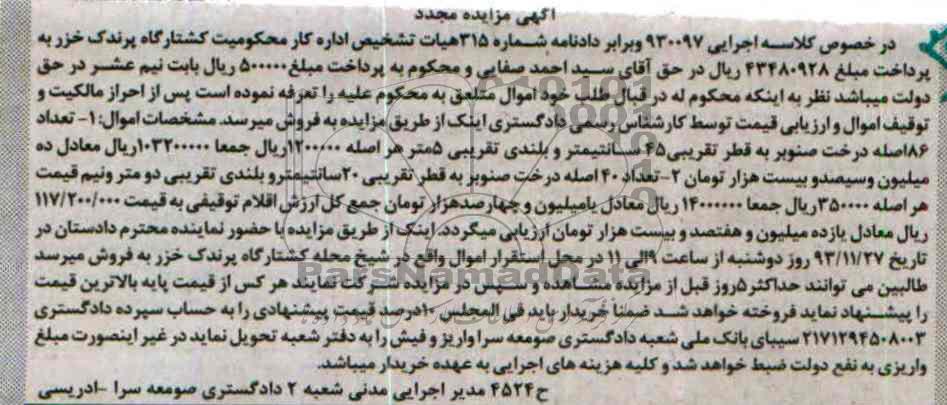 آگهی مزایده مجدد
در خصوص کلاسه اجرایی ۹۳۰۰۹۷ وبرابر دادنامه شماره ۳۱۵هیات تشخیص اداره کار محکومیت کشتارگاه پرندک خزر به
پرداخت مبلغ ۴۳۴۸۰۹۲۸ ریال در حق آقای سید احمد صفایی و محکوم به پرداخت مبلغ۵۰۰۰۰۰ ریال بابت نیم عشر در حق
دولت میباشد نظر به اینکه محکوم له در قبال طلب خود اموال متعلق به محکوم علیه را تعرفه نموده است پس از احراز مالکیت و
توقیف اموال و ارزیابی قیمت توسط کارشناس رسمی دادگستری اینک از طریق مزایده به فروش میرسد. مشخصات اموال:۱- تعداد
۸۶اصله درخت صنوبر به قطر تقریبی۴۵ سانتیمتر و بلندی تقریبی ۵متر هر اصله ۱۲۰۰۰۰۰ریال جمعا ۱۰۳۲۰۰۰۰۰ریال معادل ده
میلیون وسیصدو بیست هزار تومان ۲-تعداد ۴۰ اصله درخت صنوبر به قطر تقریبی ۲۰سانتیمترو بلندی تقریبی دو متر ونیم قیمت
هر اصله ۳۵۰۰۰۰ریال جمعا ۱۴۰۰۰۰۰۰ ریال معادل یامیلیون و چهارصدهزار تومان جمع کل ارزش اقلام توقیفی به قیمت ۱۱۷/۲۰۰/۰۰۰
ریال معادل یازده میلیون و هفتصد و بیست هزار تومان ارزیابی میگردد. اینک از طریق مزایده با حضور نماینده محترم دادستان در
تاریخ ۹۳/۱۱/۲۷ روز دوشنبه از ساعت ۹الی ۱۱ در محل استقرار اموال واقع در شیخ محله کشتارگاه پرندک خزر به فروش میرسد
طالبین می توانند حداکثر ۵روز قبل از مزایده مشاهده و سپس در مزایده شرکت نمایند هر کس از قیمت پایه بالاترین قیمت
را پیشنهاد نماید فروخته خواهد شد ضمنا خریدار باید فی المجلس ۱۰درصد قیمت پیشنهادی را به حساب سپرده دادگستری
۲۱۷۱۲۹۴۵۰۸۰۰۳ سیبای بانک ملی شعبه دادگستری صومعه سرا واریز و فیش را به دفتر شعبه تحویل نماید در غیر اینصورت مبلغ
واریزی به نفع دولت ضبط خواهد شد و کلیه هزینه های اجرایی به عهده خریدار میباشد.
ح۴۵۲۴ مدیر اجرایی مدنی شعبه ۲ دادگستری صومعه سرا -ادریسی
ParsNamadData